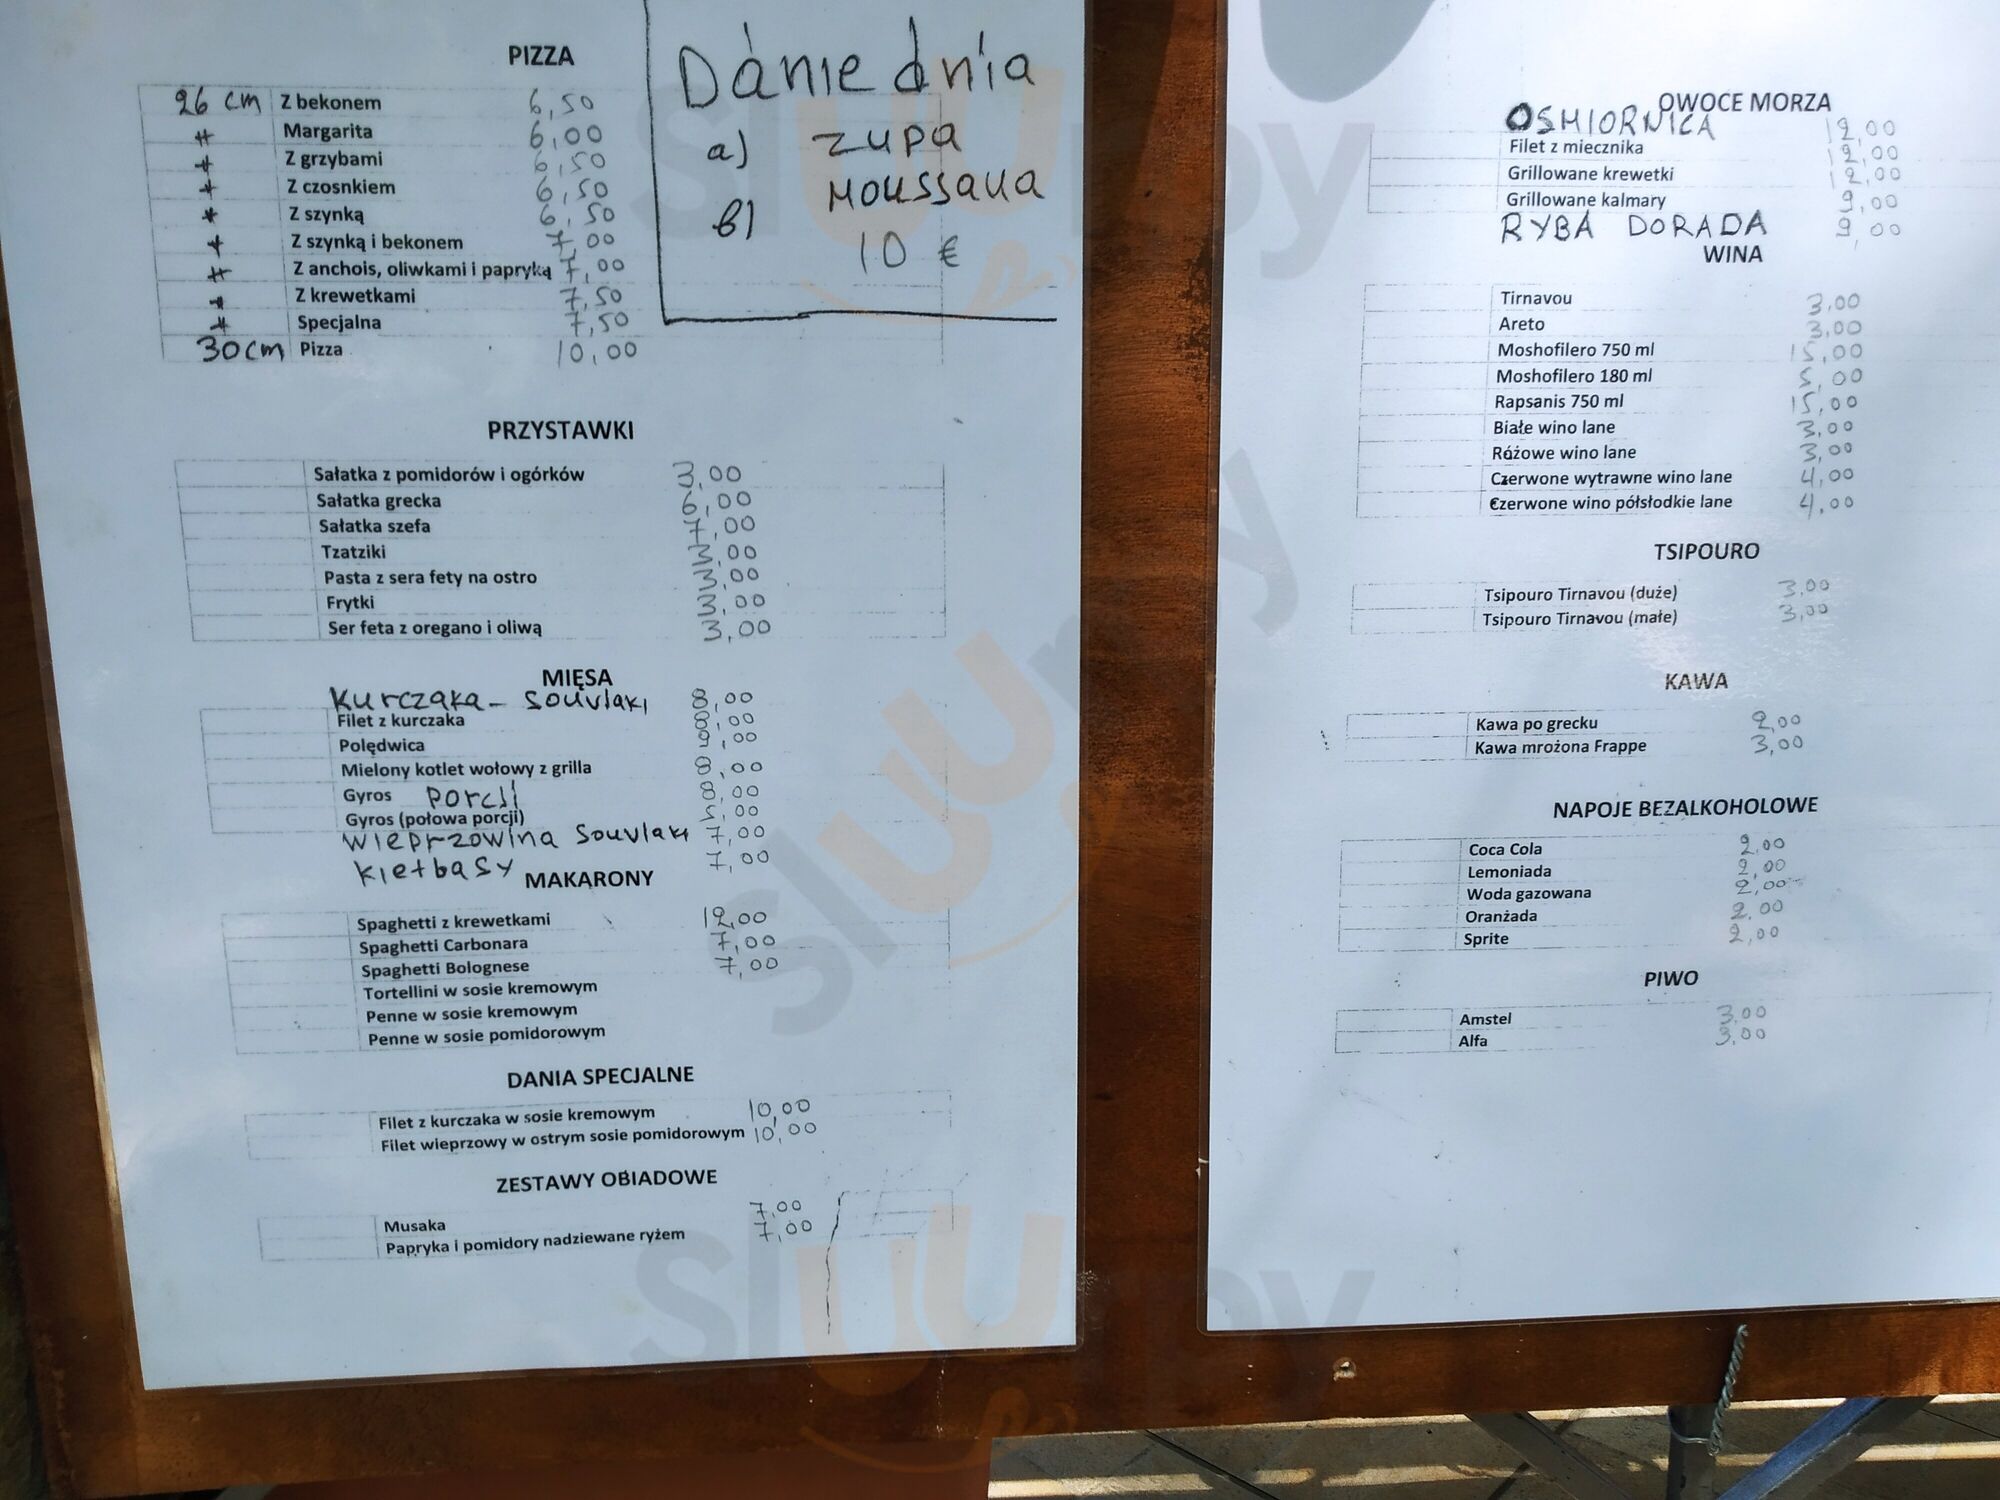 PIZZA
26 cm Z bekonem 6,50
Margarita 6,00
Z grzybami 6,50
Z czosnkiem 6,50
Z szynką 6,50
Z szynką i bekonem 7,00
Z anchois, oliwkami i papryką 7,00
Z krewetkami 7,50
Specjalna 7,50
30cm Pizza 10,00
Danie dnia
a) zupa
b) Moussaua
10 €
PRZYSTAWKI
Sałatka z pomidorów i ogórków 3,00
Sałatka grecka 6,00
Sałatka szefa 7,00
Tzatziki 3,00
Pasta z sera fety na ostro 3,00
Frytki 3,00
Ser feta z oregano i oliwą 3,00
MIĘSA
Kurczaka - souvlaki 8,00
Filet z kurczaka 8,00
Polędwica 9,00
Mielony kotlet wołowy z grilla 8,00
Gyros porcji 8,00
Gyros (połowa porcji) 5,00
wieprzowina souvlaki 7,00
kiełbasy 7,00
MAKARONY
Spaghetti z krewetkami 12,00
Spaghetti Carbonara 7,00
Spaghetti Bolognese 7,00
Tortellini w sosie kremowym
Penne w sosie kremowym
Penne w sosie pomidorowym
DANIA SPECJALNE
Filet z kurczaka w sosie kremowym 10,00
Filet wieprzowy w ostrym sosie pomidorowym 10,00
ZESTAWY OBIADOWE
Musaka 7,00
Papryka i pomidory nadziewane ryżem 7,00
OWOCE MORZA
OSMIORNICA 12,00
Filet z miecznika 12,00
Grillowane krewetki 12,00
Grillowane kalmary 9,00
RYBA DORADA 9,00
WINA
Tirnavou 3,00
Areto 3,00
Moshofilero 750 ml 15,00
Moshofilero 180 ml 5,00
Rapsanis 750 ml 15,00
Białe wino lane 3,00
Różowe wino lane 3,00
Czerwone wytrawne wino lane 4,00
Czerwone wino półsłodkie lane 4,00
TSIPOURO
Tsipouro Tirnavou (duże) 3,00
Tsipouro Tirnavou (małe) 3,00
KAWA
Kawa po grecku 2,00
Kawa mrożona Frappe 3,00
NAPOJE BEZALKOHOLOWE
Coca Cola 2,00
Lemoniada 2,00
Woda gazowana 2,00
Oranżada 2,00
Sprite 2,00
PIWO
Amstel 3,00
Alfa 3,00
sluurpy
sluurpy
sluurpy